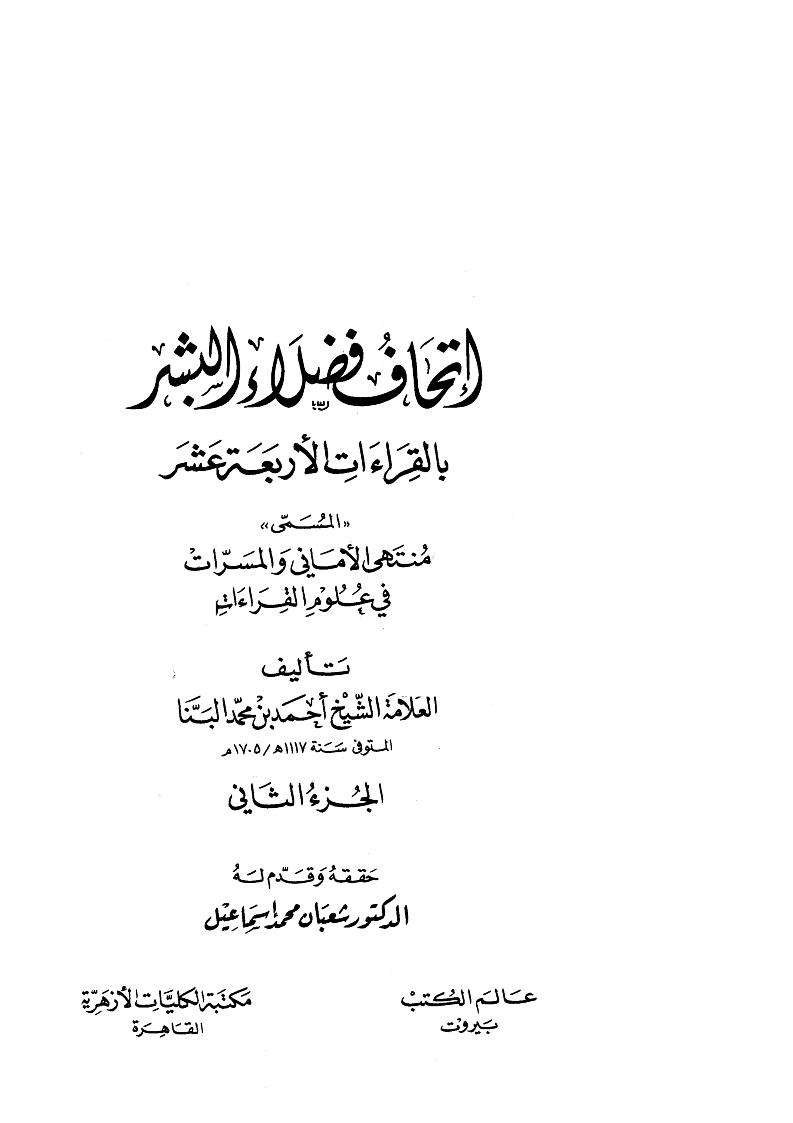 إتحاف فضلاء البشر
بالقراءات الأربعة عشر
«المُسَمّى»
مُنتهى الأماني والمسرّات
في عُلوم القراءات
تأليف
العلامة الشّيخ أحمد بن محمّد البنّا
المتوفى سَنة ١١١٧ه‍/١٧٠٥م
الجُزءُ الثاني
حَققهُ وَقدّم لهُ
الدكتور شعبان محمد إسماعيل
عالم الكتب
بيروت
مكتبة الكليّات الأزهريّة
القاهرة